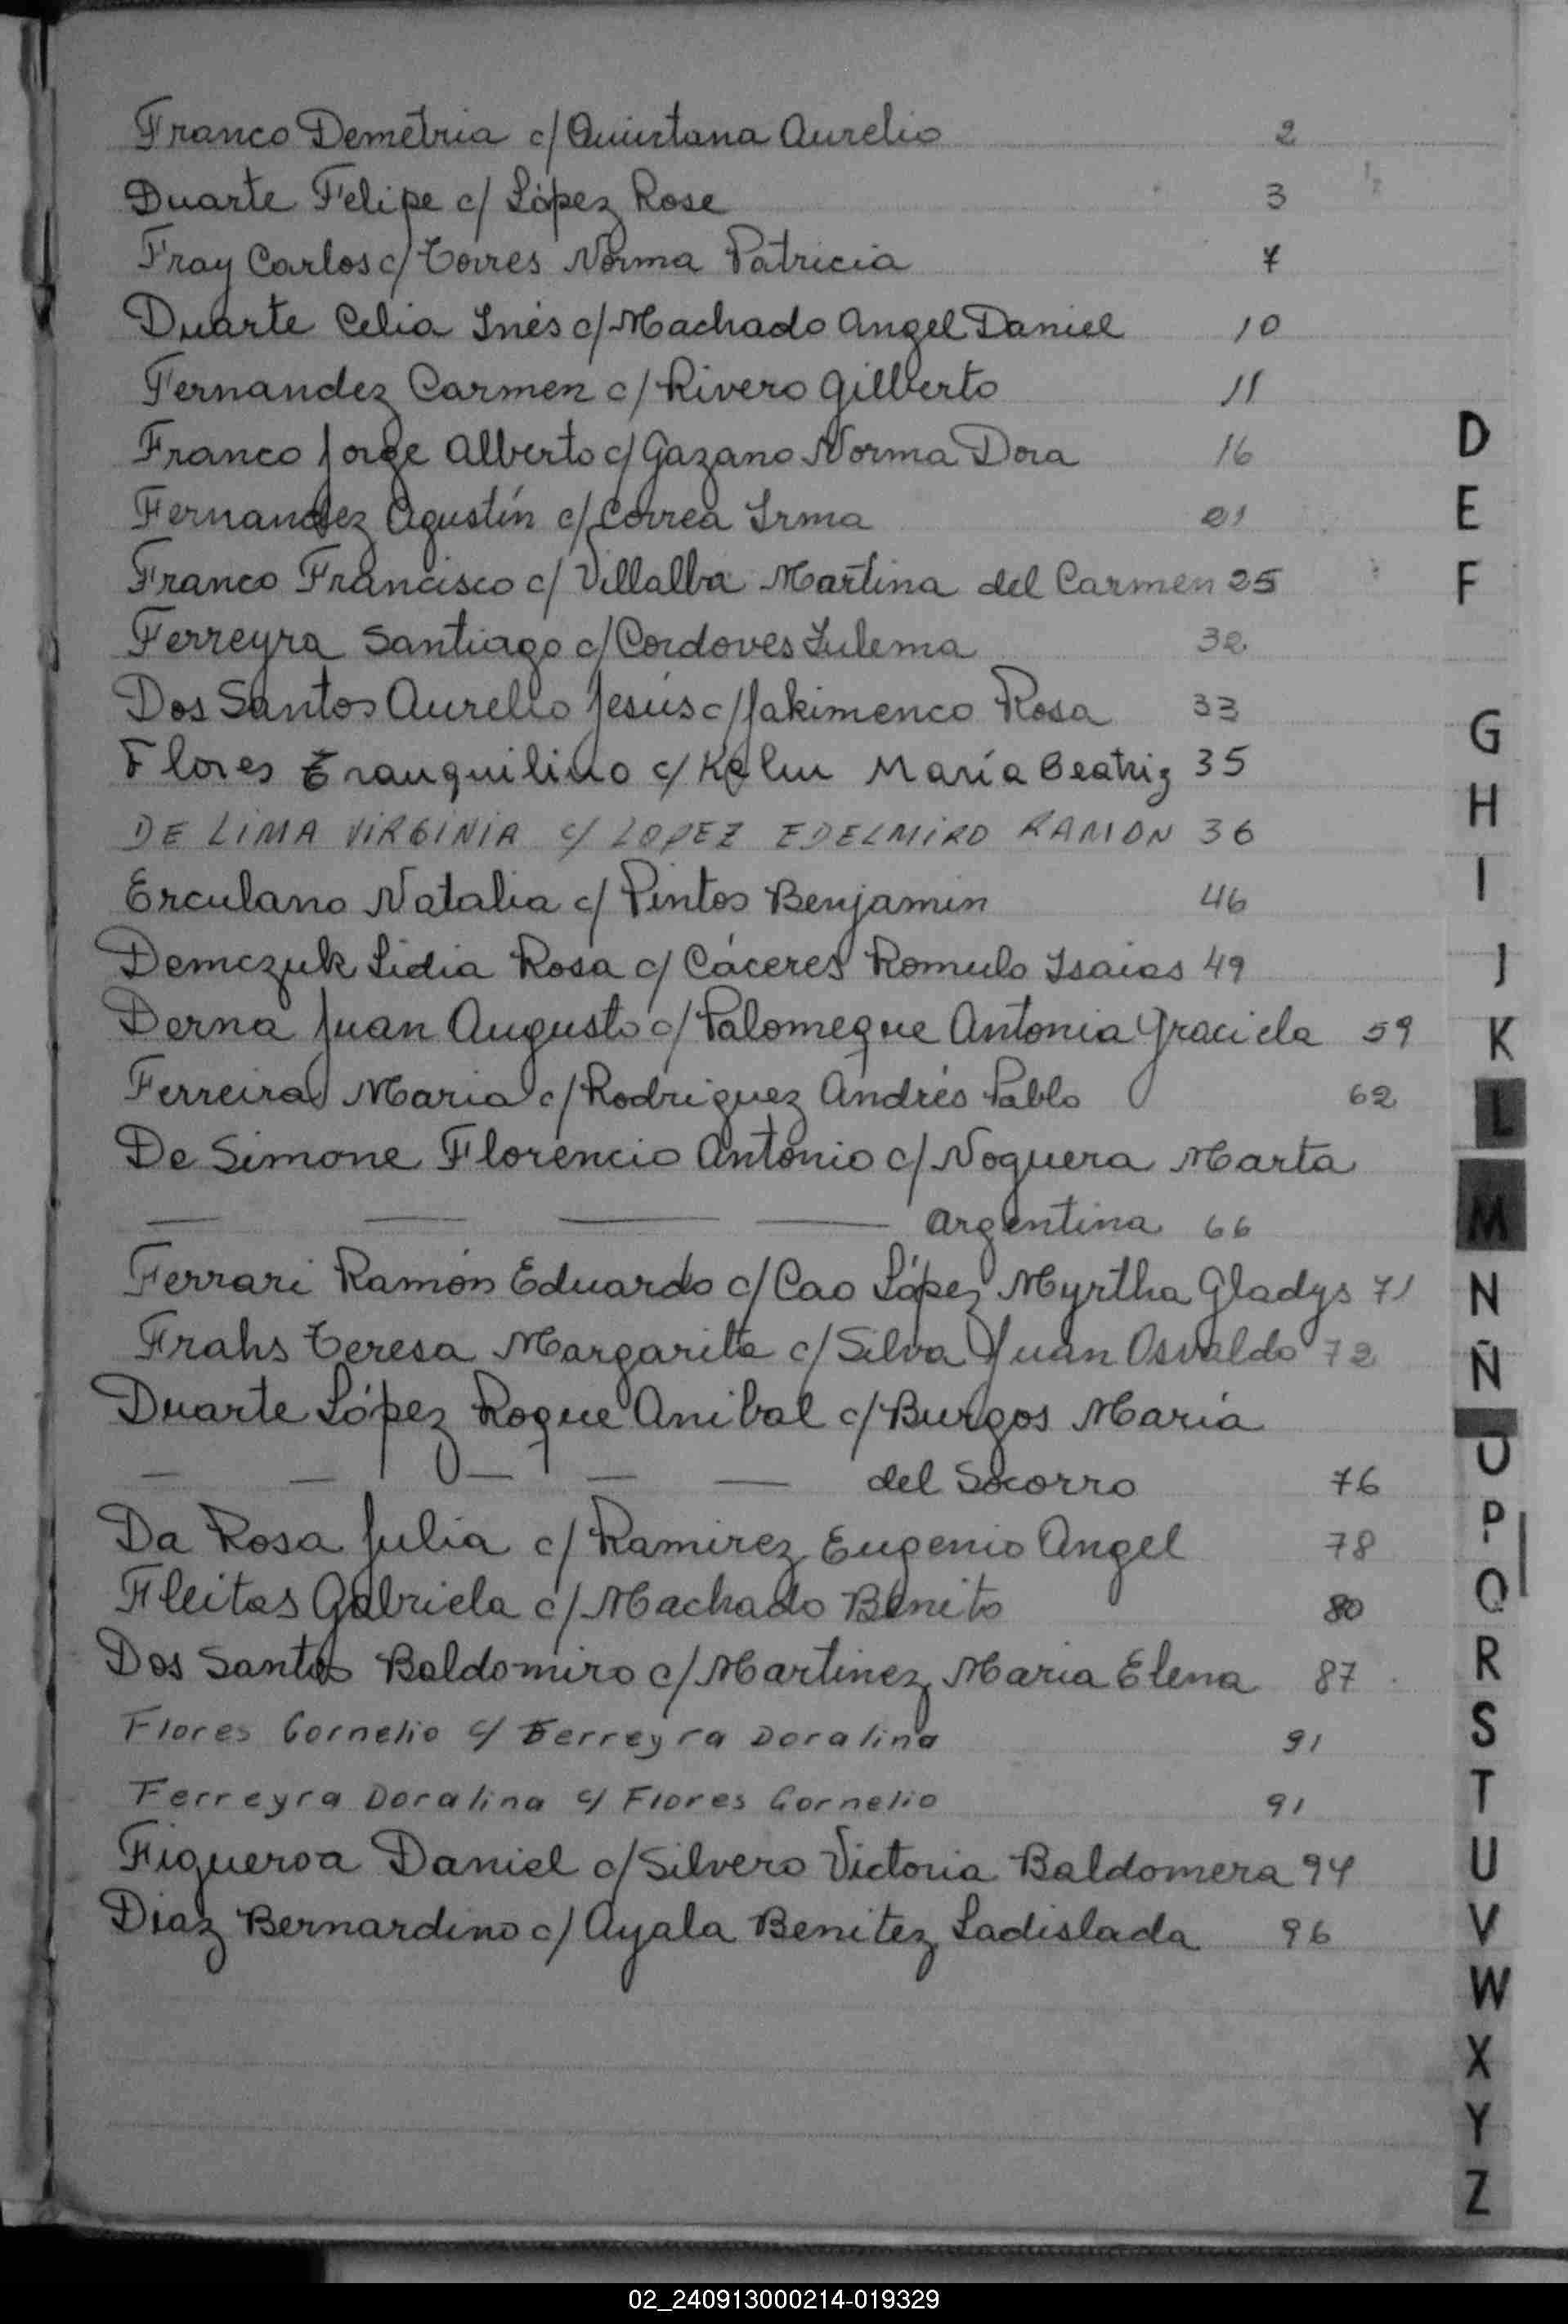 Franco Demetria c/ Quintana Aurelio 2
Duarte Felipe c/ López Rose 3
Fray Carlos c/ Torres Norma Patricia 7
Duarte Celia Inés c/ Machado Angel Daniel 10
Fernandez Carmen c/ Rivero Gilberto 11
Franco Jorge Alberto c/ Gazano Norma Dora 16
Fernandez Agustín c/ Correa Irma 21
Franco Francisco c/ Villalba Martina del Carmen 25
Ferreyra Santiago c/ Cordoves Zulema 32
Dos Santos Aurelio Jesús c/ Jakimenco Rosa 33
Flores Tranquilino c/ María Beatriz 35
DE LIMA VIRGINIA c/ LOPEZ EDELMIRO RAMON 36
Erculano Natalia c/ Pintos Benjamin 46
Demczuk Lidia Rosa c/ Cáceres Romulo Isaias 49
Derna Juan Augusto c/ Palomeque Antonia Graciela 59
Ferreira Maria c/ Rodriguez Andrés Pablo 62
De Simone Florencio Antonio c/ Noguera Marta
— — — — Argentina 66
Ferrari Ramón Eduardo c/ Cao López Myrtha Gladys 71
Frahs Teresa Margarita c/ Silva Juan Osvaldo 72
Duarte López Roque Anibal c/ Burgos María
— — — — — del Socorro 76
Da Rosa Julia c/ Ramirez Eugenio Angel 78
Fleitas Gabriela c/ Machado Benito 80
Dos Santos Baldomiro c/ Martinez Maria Elena 87
Flores Cornelio c/ Ferreyra Doralina 91
Ferreyra Doralina c/ Flores Cornelio 91
Figueroa Daniel c/ Silvero Victoria Baldomera 94
Diaz Bernardino c/ Ayala Benitez Ladislada 96
D
E
F
G
H
I
J
K
L
M
N
Ñ
O
P
Q
R
S
T
U
V
W
X
Y
Z
02_240913000214-019329